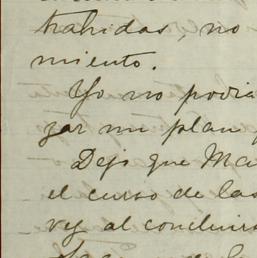 trahidas, no
miento.
Yo no podia
zar mi plan
Dejé que Ma
el curso de las
vez al concluir